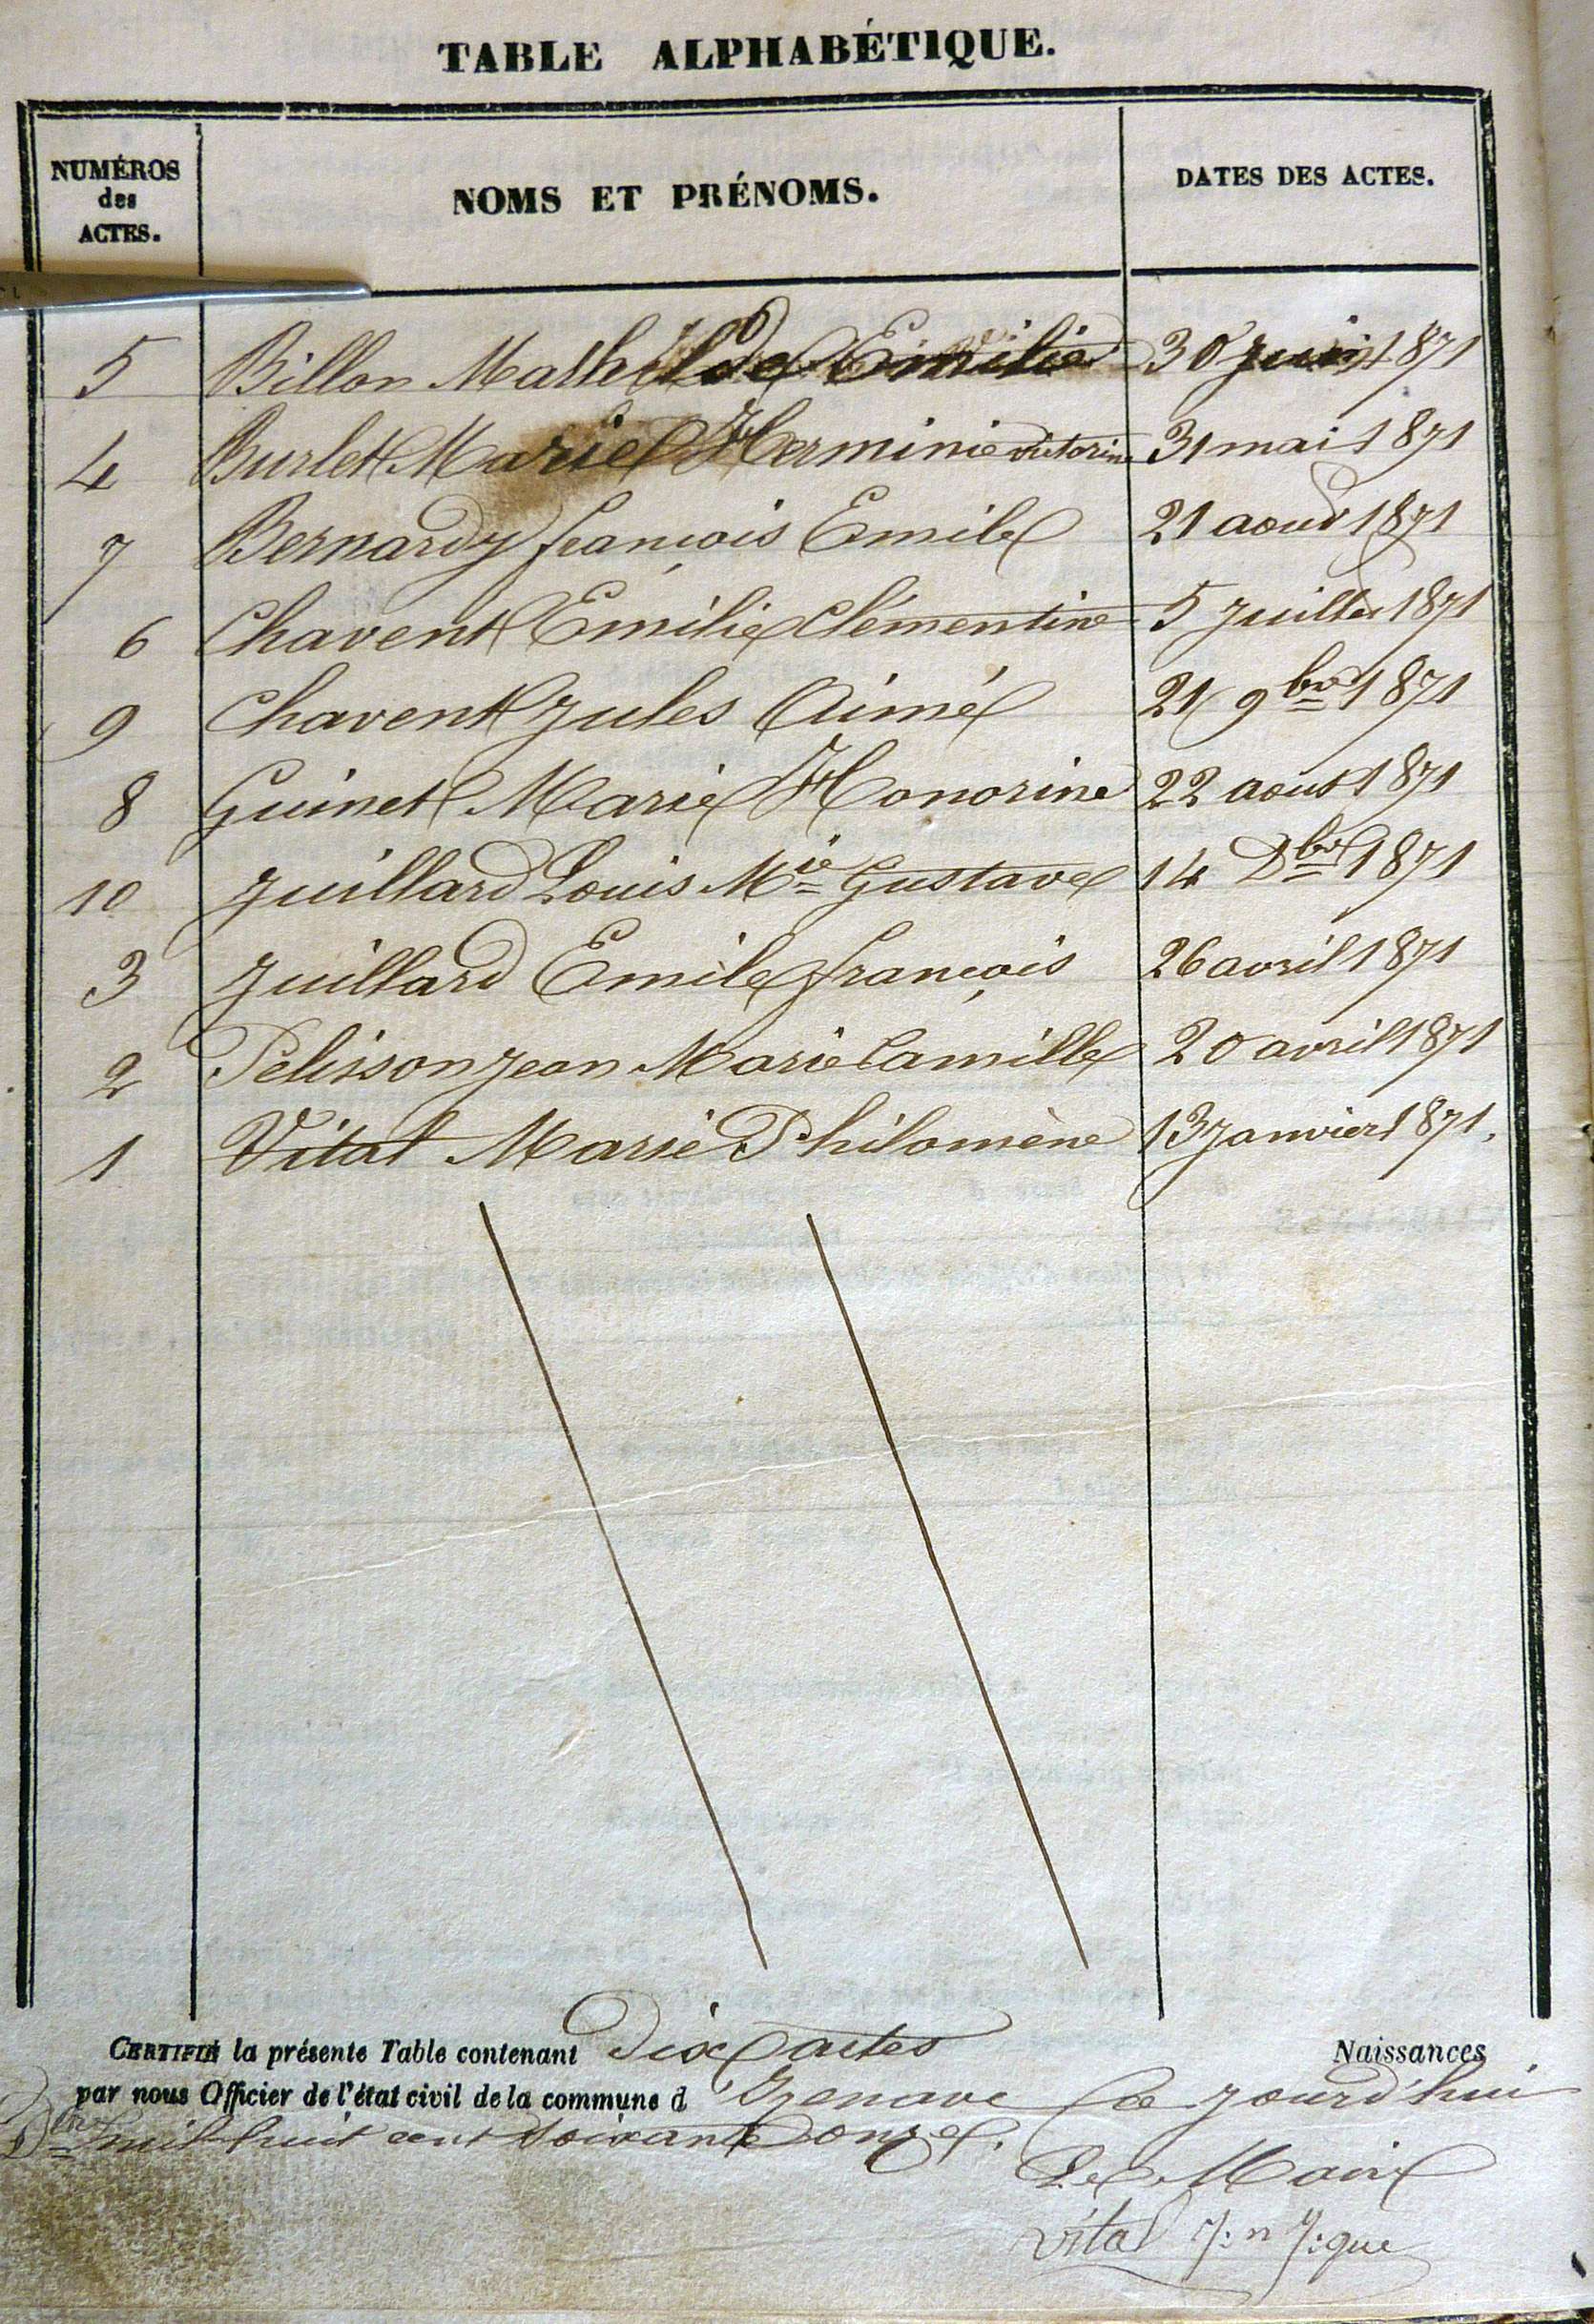 TABLE ALPHABÉTIQUE.
NUMÉROS des ACTES. NOMS ET PRÉNOMS. DATES DES ACTES.
5 Billon Mathilde Emilie 30 juin 1871
4 Burlet Marie Herminie victorine 31 mai 1871
7 Bernardy françois Emile 21 aout 1871
6 Chavent Emilie Clémentine 5 juillet 1871
9 Chavent Jules Aimé 21 9bre 1871
8 Guinet Marie Honorine 22 aout 1871
10 Juillard Louis Mie Gustave 14 Dbre 1871
3 Juillard Emile françois 26 avril 1871
2 Pelisson Jean Marie Camille 20 avril 1871
1 Vital Marie Philomène 13 janvier 1871.
CERTIFIÉ la présente Table contenant Dix actes Naissances
par nous Officier de l'état civil de la commune d Ce jourd'hui
mil huit cent soixante onze.
Le Maire
Vital